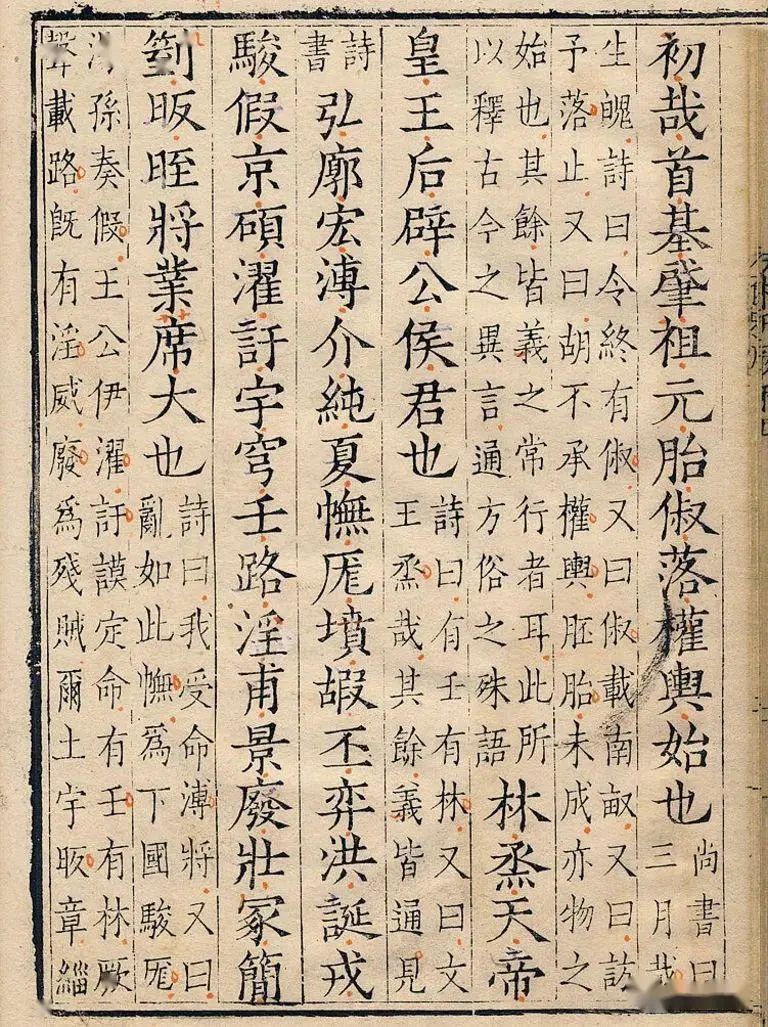 初哉首基肇祖元胎俶落權輿始也尚書曰
三月哉
生魄詩曰令終有俶又曰俶載南畝又曰訪
予落止又曰胡不承權輿胚胎未成亦物之
始也其餘皆義之常行者耳此所
以釋古今之異言通方俗之殊語林烝天帝
皇王后辟公侯君也詩曰有壬有林又曰文
王烝哉其餘義皆通見
詩
書弘廓宏溥介純夏幠厖墳嘏丕弈洪誕戎
駿假京碩濯訏宇穹壬路淫甫景廢壯冢簡
箌昄晊將業席大也詩曰我受命溥將又曰
亂如此幠爲下國駿厖
湯孫奏假王公伊濯訏謨定命有壬有林厥
聲載路既有淫威廢爲殘賊爾土宇昄章緇